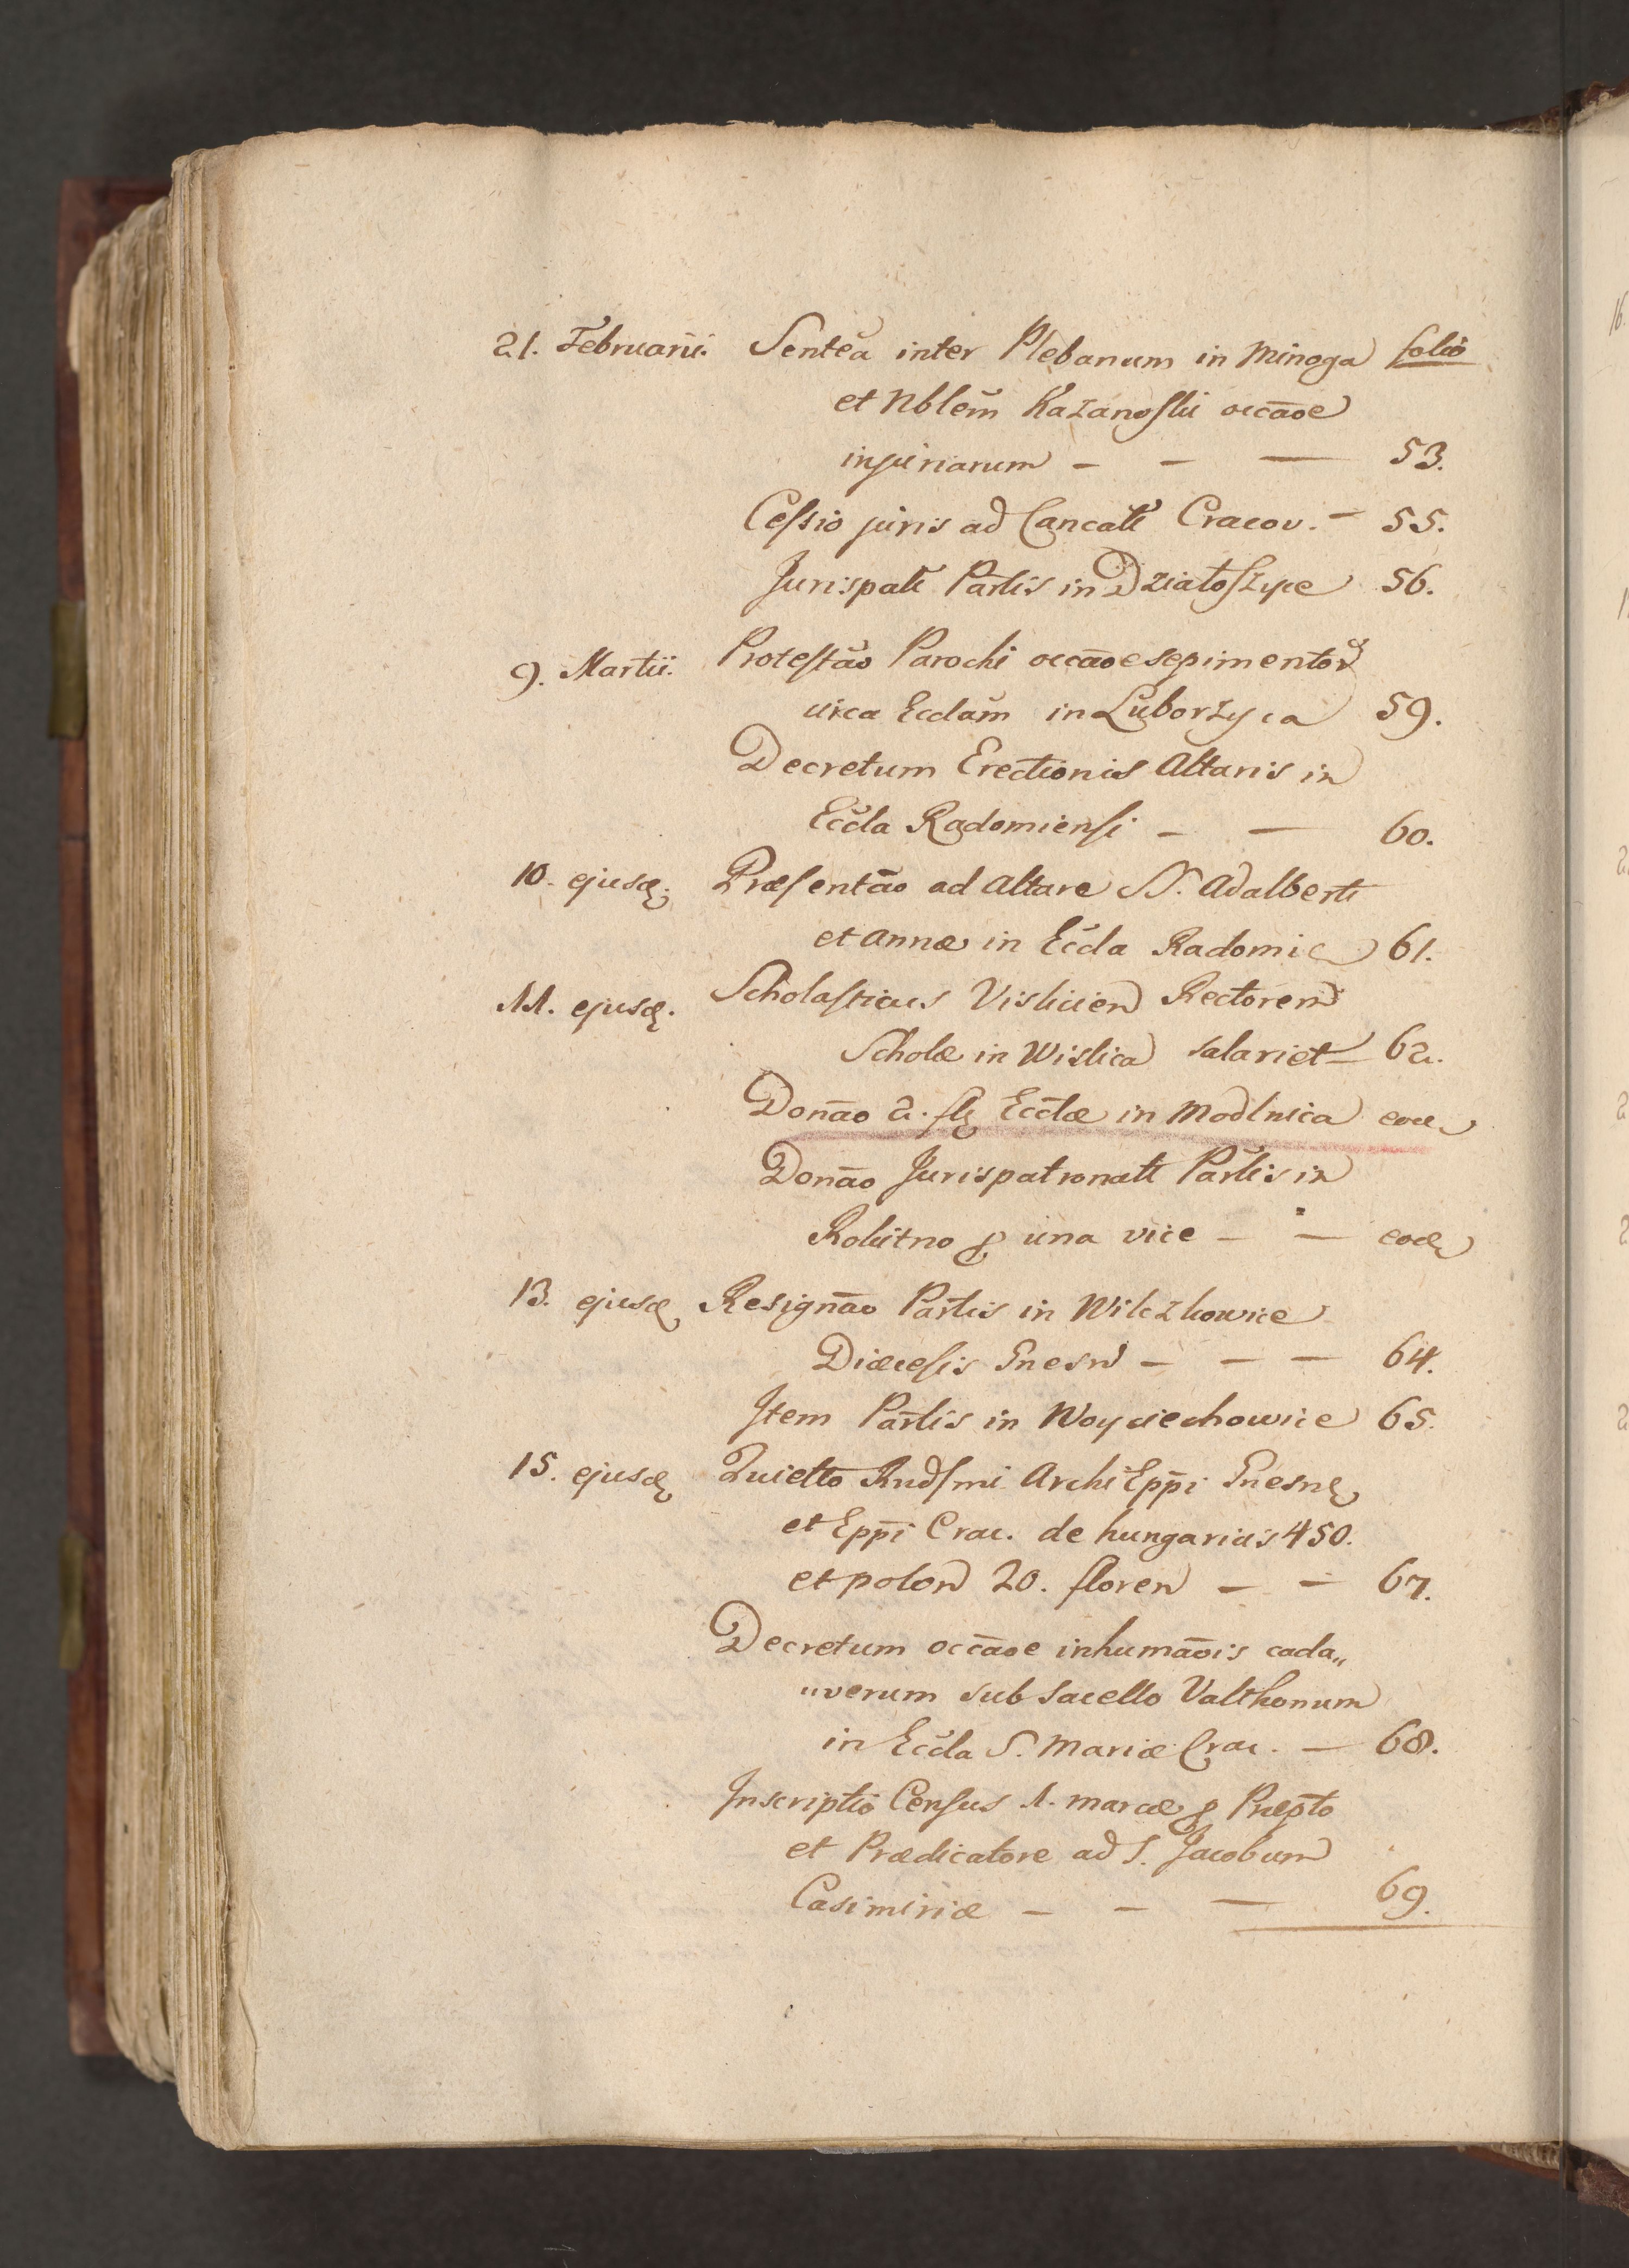 21. Februarii. Sentẽa inter Plebanum in Minoga folio
et Nblem̃ Kazanoſki occãoe
injuriarum – – — 53.
Ceſsio juris ad Cancatt Cracov. – 55.
Jurispatt Partis in Dziatoſzyce 56.
9. Martii. Proteſtão Parochi occãoe sepimentor
circa Ecclam̃ in Luborzyca 59.
Decretum Erectionis Altaris in
Eccla Radomienſi – — 60.
10. ejusd. Præſentão ad altare SS. Adalberti
et Annæ in Eccla Radomie 61.
11. ejusd. Scholaſticus Viſlicien Rectorem
Scholæ in Wiſlica salariet – 62.
Donão 2. fl Ecclæ in Modlnica eod
Donão Jurispatronatt Partis in
Rokitno p una vice – — eod
13. ejusd Resignão Partis in Wilczkowice
Diæceſis Gnesn – – — 64.
Item Partis in Woyciechowice 65.
15. ejusd Quietto Rndſmi ArchiEpp̃i Gnesn
et Epp̃i Crac. de hungaricis 450.
et polon 20. floren – – 67.
Decretum occãoe inhumãois cada„
„verum sub sacello Valthonum
in Eccla S. Mariæ Crac. — 68.
Inscriptio Cenſus 1. marcæ p Præpto
et Prædicatore ad S. Jacobum
Casimiriæ – – — 69.